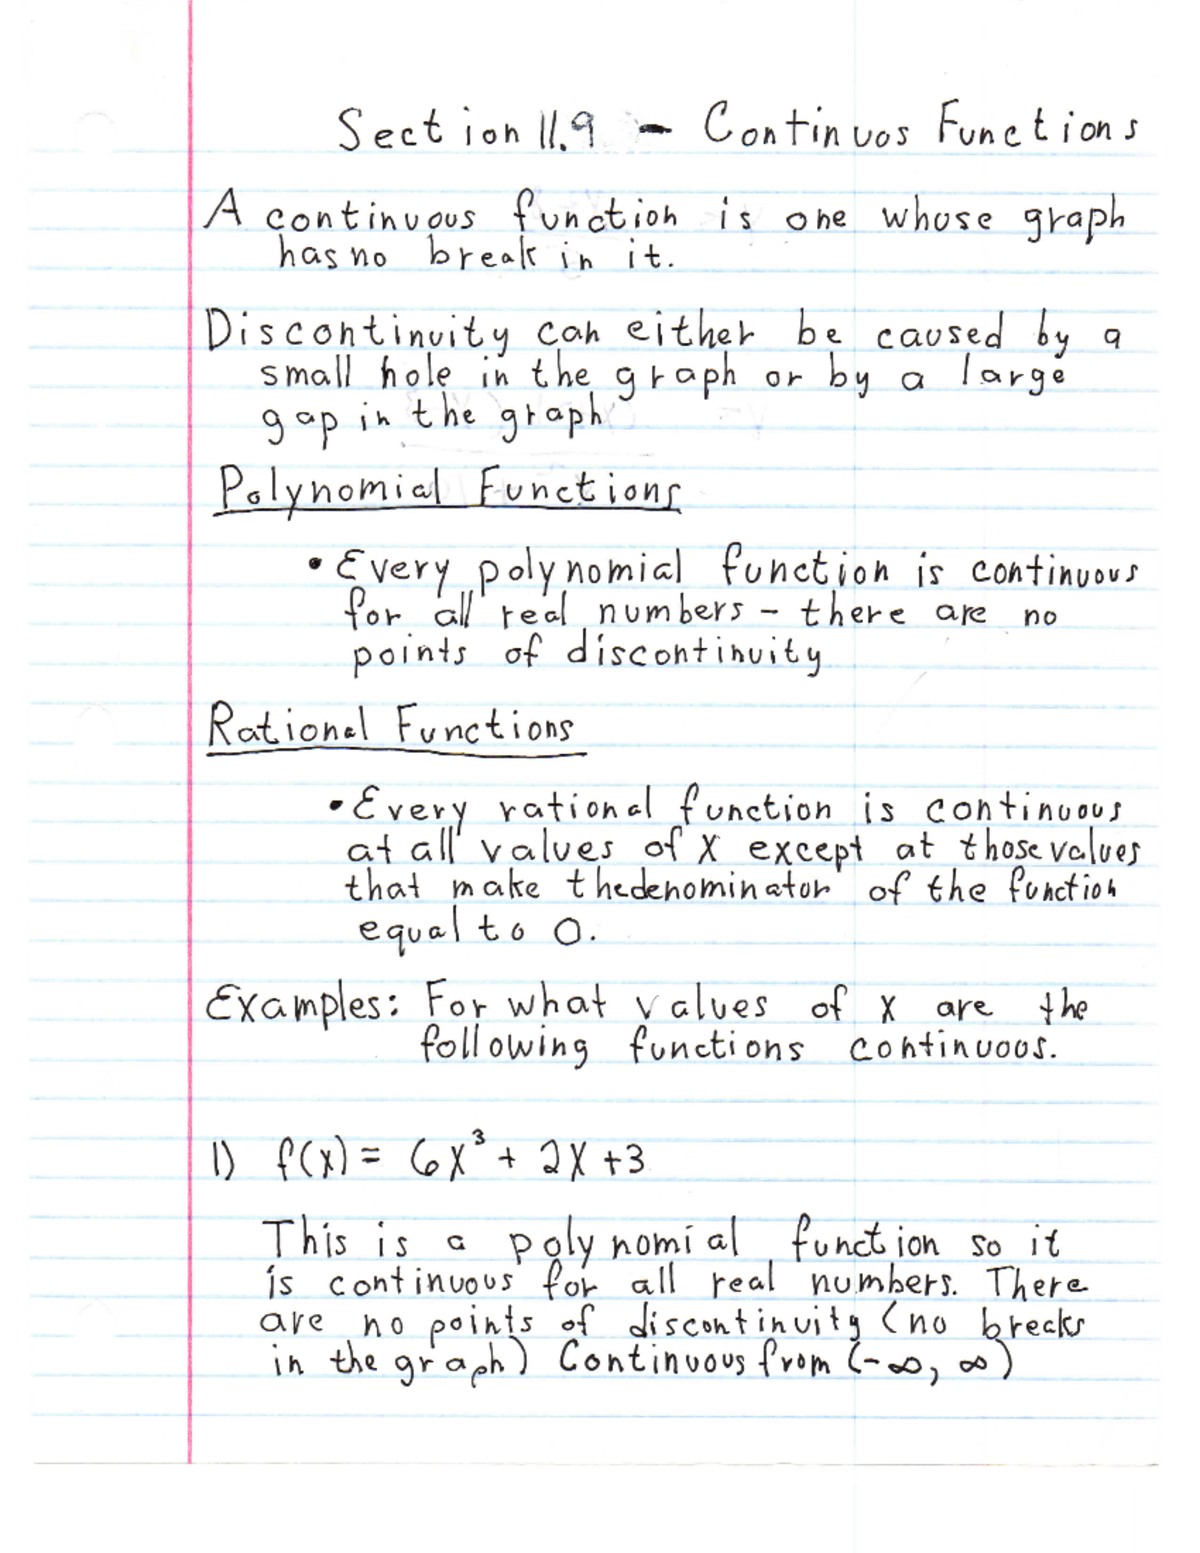 Section 11.9 - Continuos Functions
A continuous function is one whose graph
has no break in it.
Discontinuity can either be caused by a
small hole in the graph or by a large
gap in the graph
Polynomial Functions
• Every polynomial function is continuous
for all real numbers - there are no
points of discontinuity
Rational Functions
• Every rational function is continuous
at all values of X except at those values
that make the denominator of the function
equal to 0.
Examples: For what values of x are the
following functions continuous.
1) f(x) = 6x³ + 2x + 3
This is a polynomial function so it
is continuous for all real numbers. There
are no points of discontinuity (no breaks
in the graph) Continuous from (-∞, ∞)